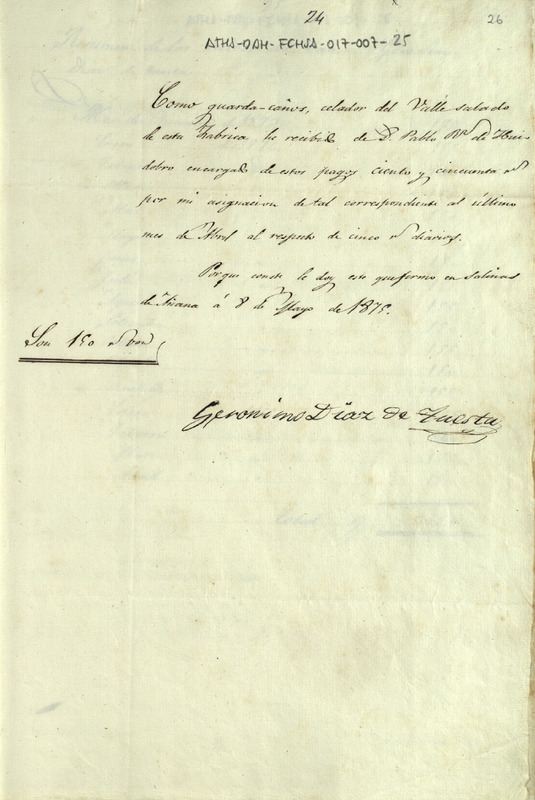 24
26
ATHA-DAH-FCHSA-017-007-25
Como guarda-caños, celador del Valle salado
de esta Fabrica, he recibido de D. Pablo Rz de Hui
dobro encargado de estos pagos ciento y cincuenta rs
por mi asignacion de tal correspondiente al último
mes de Abril al respeto de cinco rs diarios.
Porque conste le doy este que firmo en Salinas
de Añana á 8 de Mayo de 1875.
Son 150 rs von
Geronimo Diaz de Tuesta